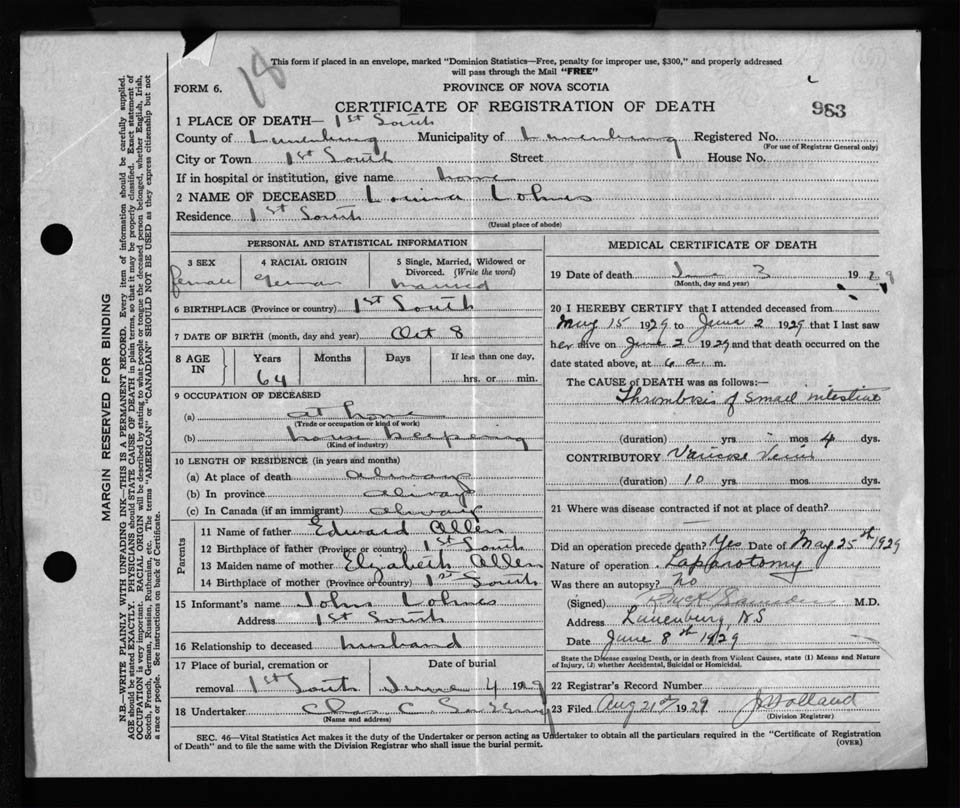 18
This form if placed in an envelope, marked "Dominion Statistics—Free, penalty for improper use, $300," and properly addressed
will pass through the Mail "FREE"
FORM 6.
PROVINCE OF NOVA SCOTIA
983
CERTIFICATE OF REGISTRATION OF DEATH
1 PLACE OF DEATH— 1st South
County of Lunenburg Municipality of Lunenburg Registered No.
(For use of Registrar General only)
City or Town 1st South Street House No.
If in hospital or institution, give name home
2 NAME OF DECEASED Louisa Lohnes
Residence 1st South
(Usual place of abode)
PERSONAL AND STATISTICAL INFORMATION
3 SEX 4 RACIAL ORIGIN 5 Single, Married, Widowed or
Divorced. (Write the word)
female German married
6 BIRTHPLACE (Province or country) 1st South
7 DATE OF BIRTH (month, day and year) Oct 8
8 AGE IN Years Months Days If less than one day,
64 hrs. or min.
9 OCCUPATION OF DECEASED
(a) at home
(Trade or occupation or kind of work)
(b) house keeping
(Kind of industry)
10 LENGTH OF RESIDENCE (in years and months)
(a) At place of death always
(b) In province always
(c) In Canada (if an immigrant) always
Parents
11 Name of father Edward Allen
12 Birthplace of father (Province or country) 1st South
13 Maiden name of mother Elizabeth Allen
14 Birthplace of mother (Province or country) 1st South
15 Informant's name John Lohnes
Address 1st South
16 Relationship to deceased husband
17 Place of burial, cremation or Date of burial
removal 1st South June 4 1929
18 Undertaker Chas C
(Name and address)
MEDICAL CERTIFICATE OF DEATH
19 Date of death June 3 192
(Month, day and year)
20 I HEREBY CERTIFY that I attended deceased from
May 15 1929 to June 2 1929 that I last saw
her alive on June 2 1929 and that death occurred on the
date stated above, at 6 a m.
The CAUSE of DEATH was as follows:—
Thrombosis of small intestine
(duration) yrs. mos 4 dys.
CONTRIBUTORY Varicose Veins
(duration) 10 yrs. mos. dys.
21 Where was disease contracted if not at place of death?
Did an operation precede death? Yes Date of May 25th 1929
Nature of operation Laparotomy
Was there an autopsy? No
(Signed) M.D.
Address Lunenburg NS
Date June 8th 1929
State the Disease causing Death, or in death from Violent Causes, state (1) Means and Nature
of Injury, (2) whether Accidental, Suicidal or Homicidal.
22 Registrar's Record Number
23 Filed Aug 21st 1929 Holland
(Division Registrar)
SEC. 46—Vital Statistics Act makes it the duty of the Undertaker or person acting as Undertaker to obtain all the particulars required in the "Certificate of Registration
of Death" and to file the same with the Division Registrar who shall issue the burial permit.
(OVER)
MARGIN RESERVED FOR BINDING
N.B.—WRITE PLAINLY WITH UNFADING INK—THIS IS A PERMANENT RECORD. Every item of information should be carefully supplied.
AGE should be stated EXACTLY. PHYSICIANS should STATE CAUSE OF DEATH in plain terms, so that it may be properly classified. Exact statement of
OCCUPATION is very important. RACIAL ORIGIN will be described by stating to what people or tongue the deceased person belonged, whether English, Irish,
Scotch, French, German, Russian, Ruthenian, etc. The terms "AMERICAN" or "CANADIAN" SHOULD NOT BE USED as they express citizenship but not
a race or people. See instructions on back of Certificate.